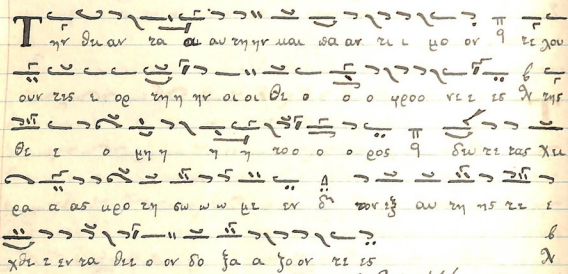 Την θει αν τα α αυ τη ην και πα αν τι ι μο ον q τε λου
ουν τες ε ορ τη η ην οι οι Θε ο ο ο φρο νε ε ες λ της
θε ε ο μη η η η το ο ο ο ρος q δευ τε τας χει
ρα α ας κρο τη σω ω ω με εν δη τον εξ αυ τη ης τε ε
χθε ε εν τα θε ε ο ον δο ξα α ζο ον τε ες λ